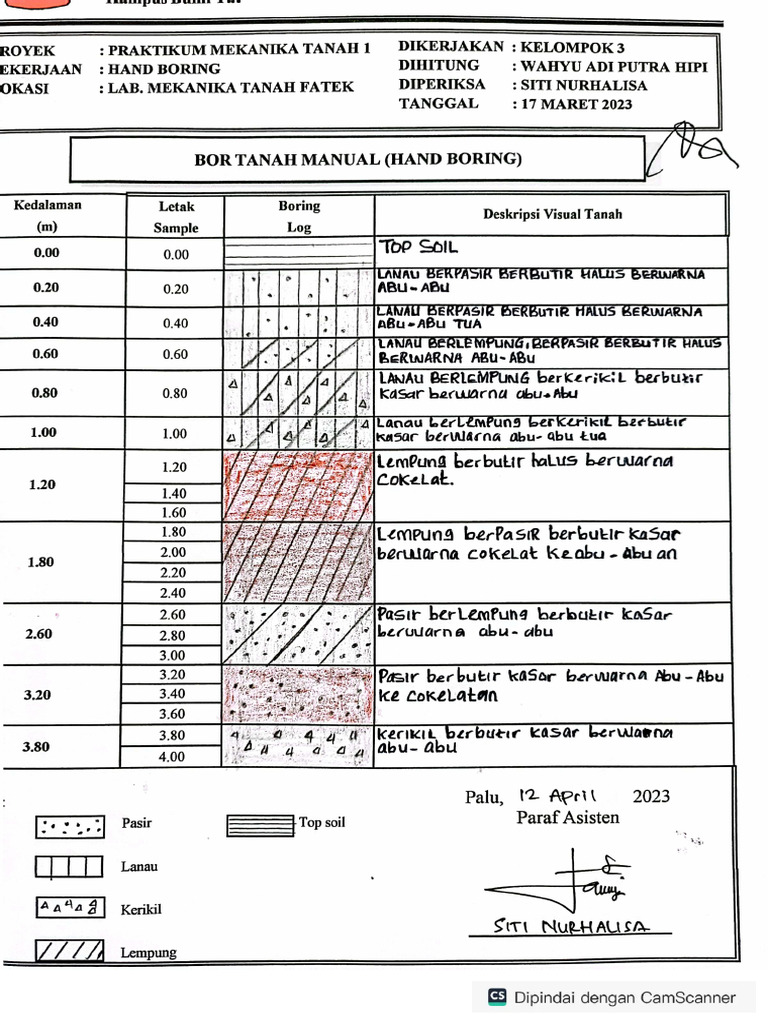 ROYEK : PRAKTIKUM MEKANIKA TANAH 1
EKERJAAN : HAND BORING
OKASI : LAB. MEKANIKA TANAH FATEK
DIKERJAKAN : KELOMPOK 3
DIHITUNG : WAHYU ADI PUTRA HIPI
DIPERIKSA : SITI NURHALISA
TANGGAL : 17 MARET 2023
BOR TANAH MANUAL (HAND BORING)
Kedalaman (m) Letak Sample Boring Log Deskripsi Visual Tanah
0.00 0.00 TOP SOIL
0.20 0.20 LANAU BERPASIR BERBUTIR HALUS BERWARNA
ABU-ABU
0.40 0.40 LANAU BERPASIR BERBUTIR HALUS BERWARNA
ABU-ABU TUA
0.60 0.60 LANAU BERLEMPUNG, BERPASIR BERBUTIR HALUS
BERWARNA ABU-ABU
0.80 0.80 LANAU BERLEMPUNG berkerikil berbutir
kasar berwarna abu-Abu
1.00 1.00 Lanau berlempung berkerikil berbutir
kasar berwarna abu-abu tua
1.20 1.20 Lempung berbutir halus berwarna
1.40 Cokelat.
1.60
1.80 1.80 Lempung berPasir berbutir kaSar
2.00 berwarna cokelat Keabu-Abuan
2.20
2.40
2.60 2.60 Pasir berLempung berbutir kaSar
2.80 berwarna abu-abu
3.00
3.20 3.20 Pasir berbutir kasar berwarna Abu-Abu
3.40 ke cokelatan
3.60
3.80 3.80 kerikil berbutir kasar berwarna
4.00 abu-abu
Palu, 12 April 2023
Paraf Asisten
Pasir
Top soil
Lanau
Kerikil
Lempung
SITI NURHALISA
CS Dipindai dengan CamScanner